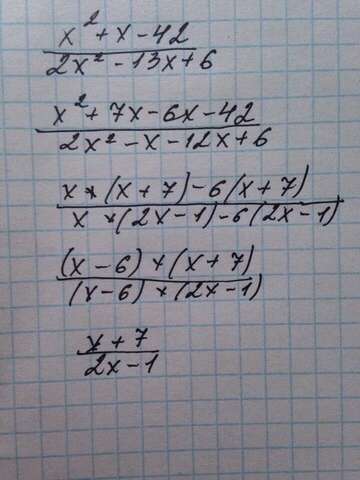 x² + x - 42
2x² - 13x + 6
x² + 7x - 6x - 42
2x² - x - 12x + 6
x * (x + 7) - 6(x + 7)
x * (2x - 1) - 6(2x - 1)
(x - 6) * (x + 7)
(x - 6) * (2x - 1)
x + 7
2x - 1